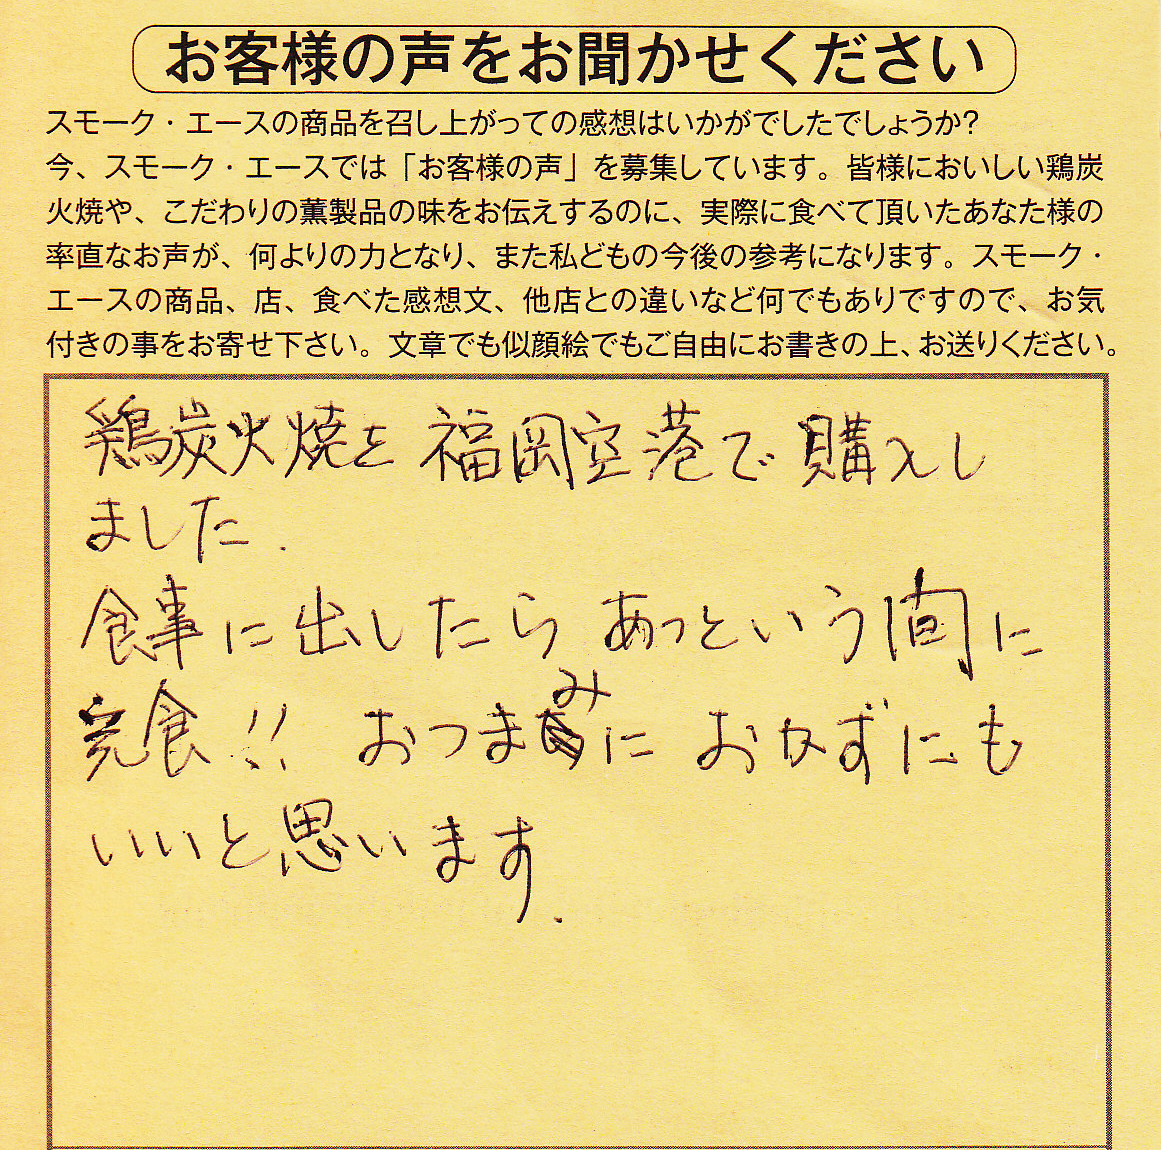 お客様の声をお聞かせください
スモーク・エースの商品を召し上がっての感想はいかがでしたでしょうか?
今、スモーク・エースでは「お客様の声」を募集しています。皆様においしい鶏炭
火焼や、こだわりの薫製品の味をお伝えするのに、実際に食べて頂いたあなた様の
率直なお声が、何よりの力となり、また私どもの今後の参考になります。スモーク・
エースの商品、店、食べた感想文、他店との違いなど何でもありですので、お気
付きの事をお寄せ下さい。文章でも似顔絵でもご自由にお書きの上、お送りください。
鶏炭火焼を福岡空港で購入し
ました.
食事に出したらあっという間に
完食!! おつまみに おかずにも
いいと思います.